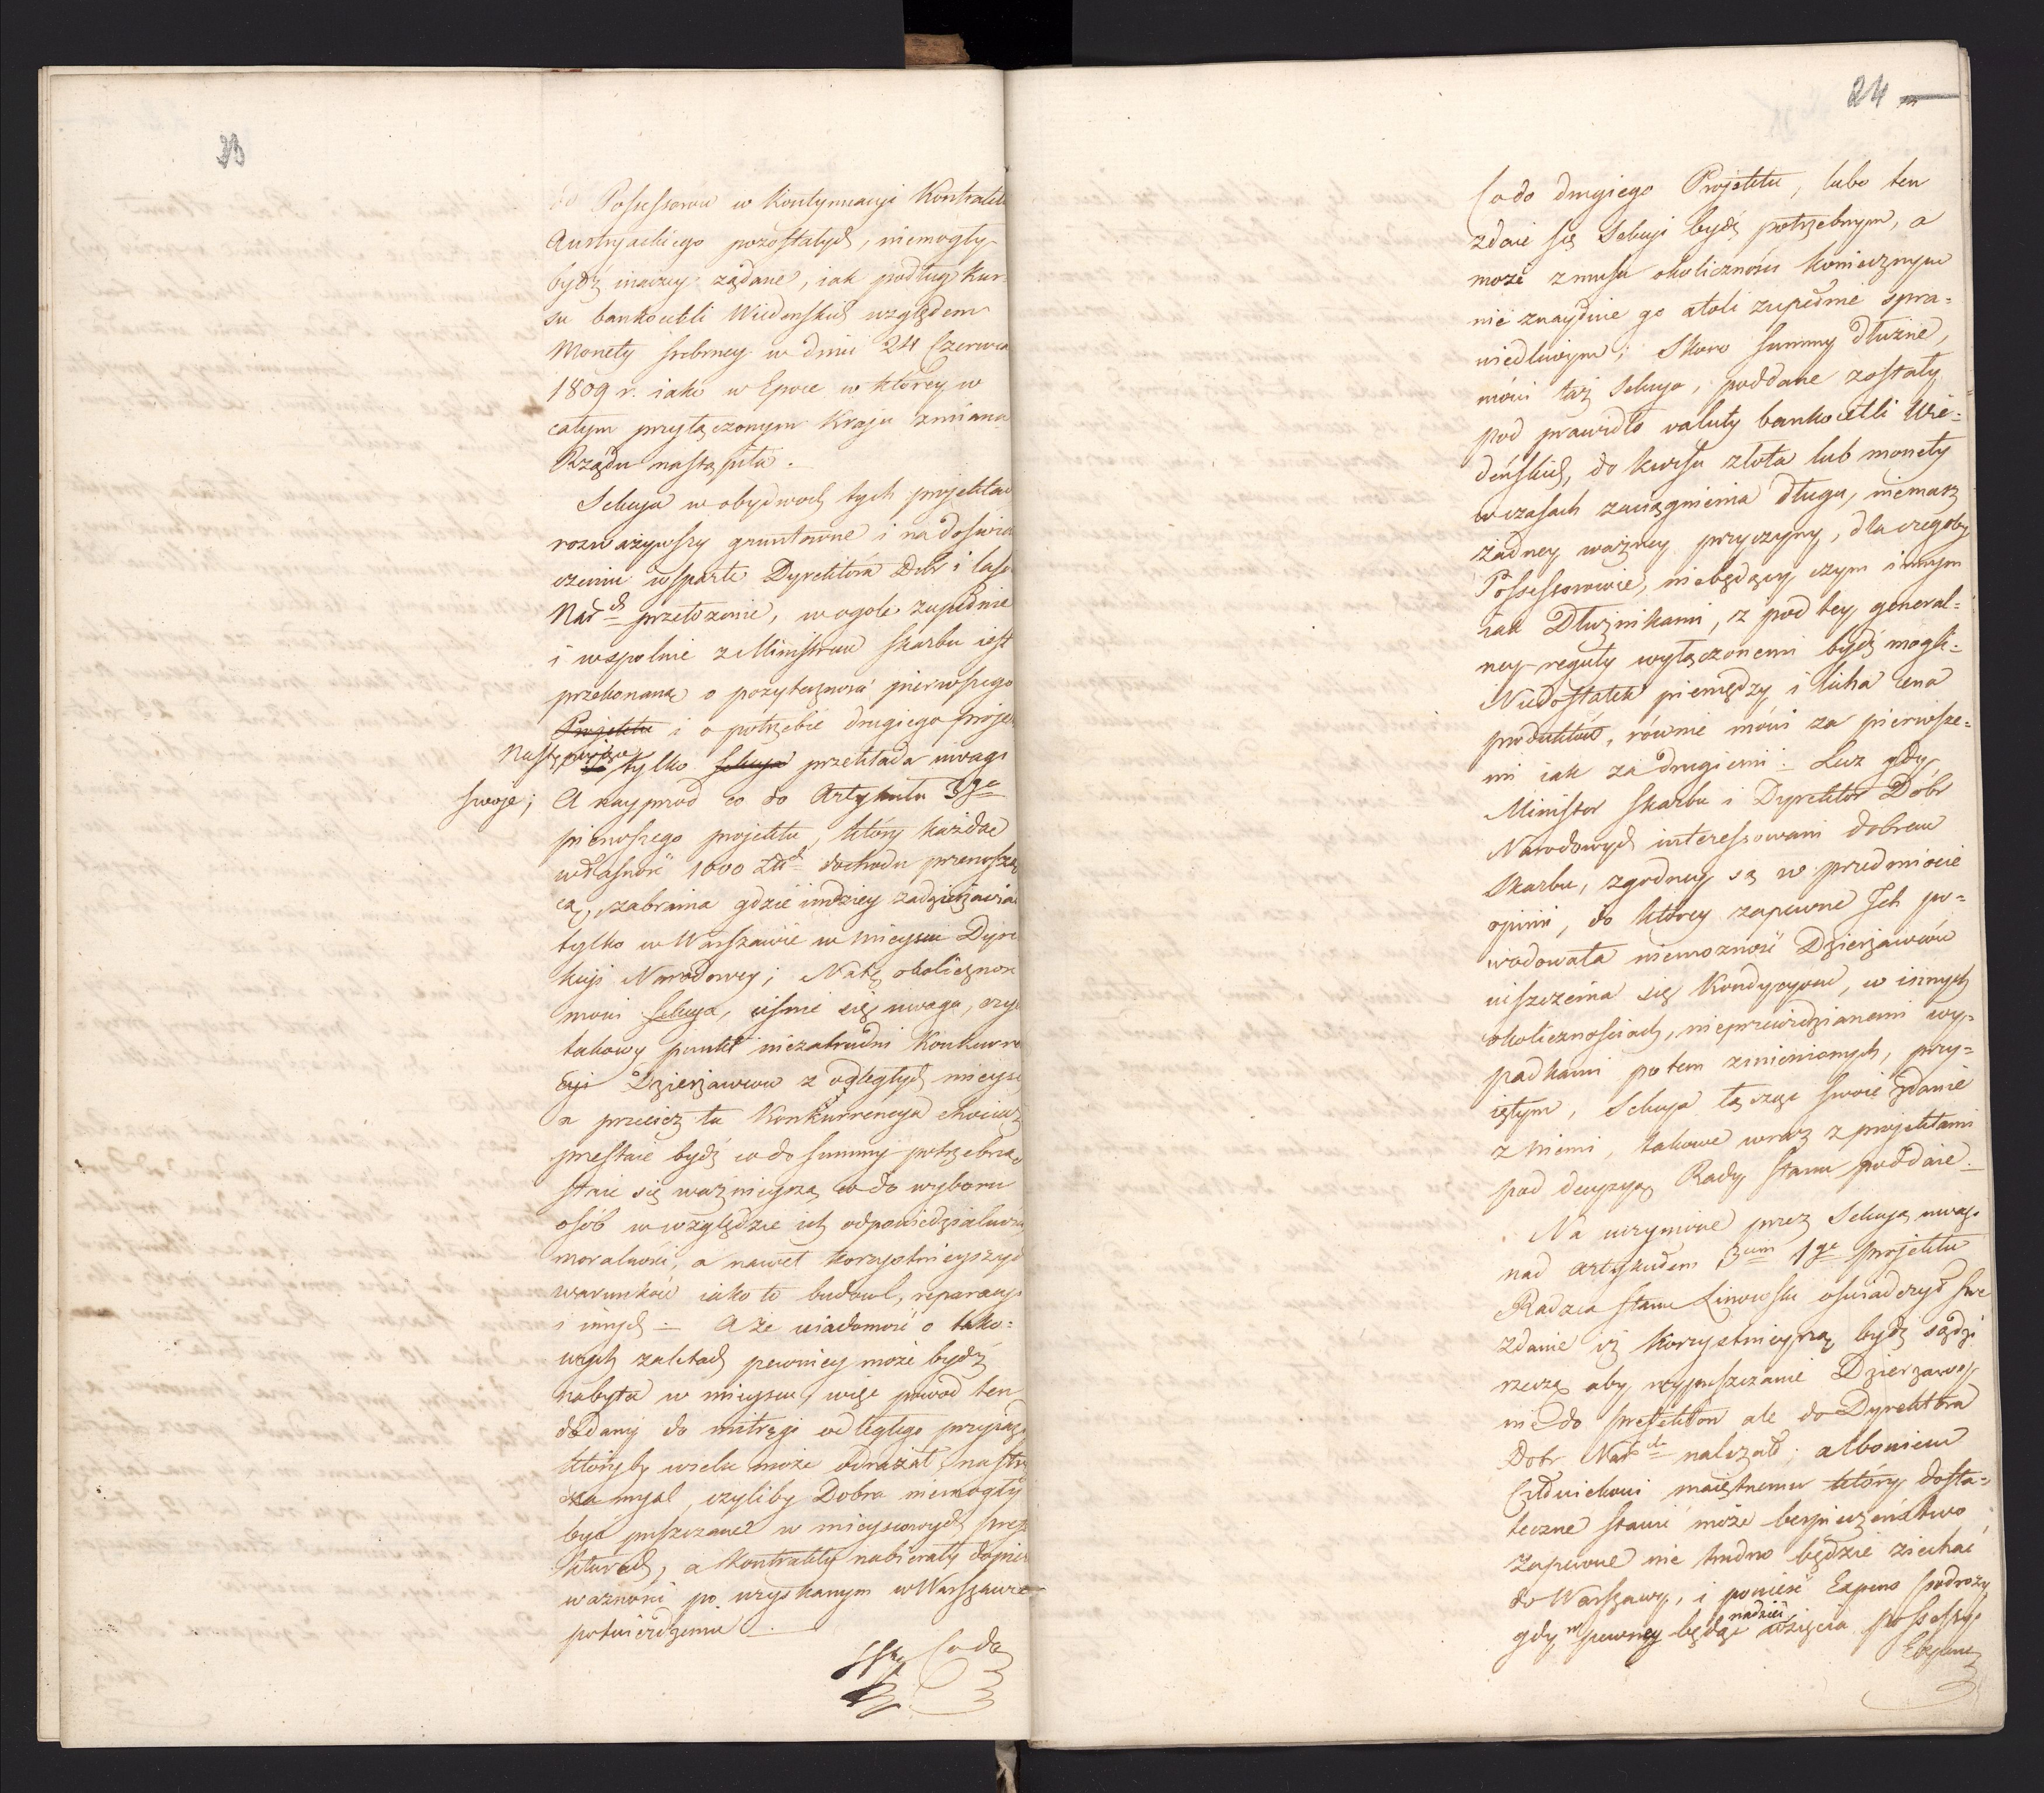 23
do Possessorow w kontynuacyi Kontraktu
Austryackiego pozostałych, niemogły
bydź inaczey żądane, iak podług kur-
su bankocetli Wiedenskich względem
Monety srebrney w dniu 24 Czerwca
1809 r. iako w Epoce w którey w
całym przyłączonym Kraju zmiana
Rządu nastąpiła.
Sekcya w obydwoch tych projektach
rozważywszy gruntowne i na doswiad
czeniu wsparte Dyrektora Dobr i lasow
Nar^ch przełożenie, w ogole zupełnie
i wspolnie z Ministrem Skarbu iest
przekonaną o pozytecznosci pierwszego
Projektu i o potrzebie drugiego projek
Następuiące tylko Sekcya przekłada uwagi
swoje; A nayprzod co do Artykułu 3go
pierwszego projektu, który każdae
własność 1000 Zł^ch dochodu przenoszą
cą, zabrania gdzie indziey zadzierżawiać
tylko w Warszawie w mieyscu Dyre
kcyi Narodowey; Na tę okoliczność
mowi Sekcya, ciśnie się uwaga, czyli
takowy punkt niezatrudni Konkurre
cyi Dzierżawcow z odległych mieysc
a przecież ta Konkurrencya chociaż
przestaie bydź co do summy potrzebną,
staie się ważnieyszą co do wyboru
osób w względzie ich odpowiedzialności
moralności, a nawet korzystnieyszych
warunków iako to budowl, reparacyi
i innych – A że wiadomość o tako-
wych zaletach pewniey może bydź
nabyta w mieyscu, więc powod ten
dodany do mitręgi odległego przyjazd
któryby wielu może odrażał, nastrę
cza mysl, czyliby Dobra niemogły
być puszczane w mieyscowych Prefe
kturach, a kontrakty nabierały dopiero
ważności po uzyskanym w Warszawie
potwierdzeniu.
Co do
24
Co do drugiego Projektu, lubo ten
zdaie się Sekcyi bydź potrzebnym, a
może z musu okoliczności koniecznym
nie znayduie go atoli zupełnie spra-
wiedliwym; Skoro summy dłużne,
mówi taż Sekcya, poddane zostały
pod prawidło waluty bankocetli Wie-
deńskich, do kursu złota lub monety
w czasach zaciągnienia długu, niemasz
żadney ważney przyczyny, dla czegoby
Possessorowie, niebędący czym innym
iak Dłużnikami, z pod tey general-
ney reguły wyłączonemi bydź mogli-
Niedostatek pieniędzy i licha cena
produktów, równie mówi za pierwsze-
mi iak za drugiemi – Lecz gdy
Minister Skarbu i Dyrektor Dóbr
Narodowych interessowani dobrem
Skarbu, zgodney są w przedmiocie
opinii, do którey zapewne Ich po-
wodowała niemożność Dzierżawców
uiszczenia się Kondycyom, w innych
okolicznościach, nieprzewidzianemi wy-
padkami potem zmienionych, przy-
iętym, Sekcya łącząc swoie zdanie
z niemi, takowe wraz z projektami
pod decyzyą Rady Stanu poddaie.
Na uczynione przez Sekcyą uwagi
nad artykułem 3cim 1go projektu
Radzca Stanu Linowski oswiadczył swe
zdanie iż korzystnieyszą bydź sądzi
rzeczą aby wypuszczanie Dzierzawy
nie do prefektow ale do Dyrektora
Dobr Nar^ch należało; albowiem
Człowiekowi maiętnemu który dosta-
teczne stawić może bespieczeństwo
zapewne nie trudno będzie ziechać
do Warszawy, i ponieść Expens podroży
gdy w pewney będzie nadziei wzięcia possessyi
Expens